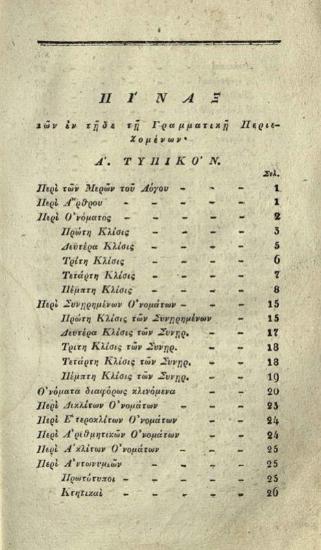 ΠΙ΄ΝΑΞ
τῶν ἐν τῇδε τῇ Γραμματικῇ Περιε-
χομένων·
Α΄. ΤΥΠΙΚΟ΄Ν.
Σελ.
Περὶ τῶν Μερῶν τοῦ Λόγου - - - 1
Περὶ Α῎ρθρου - - - - - - 1
Περὶ Ο᾿νόματος - - - - - 2
Πρώτη Κλίσις - - - - 3
Δευτέρα Κλίσις - - - - 5
Τρίτη Κλίσις - - - - 6
Τετάρτη Κλίσις - - - - 7
Πέμπτη Κλίσις - - - - 8
Περὶ Συνῃρημένων Ο᾿νομάτων - - - 15
Πρώτη Κλίσις τῶν Συνῃρημένων - 15
Δευτέρα Κλίσις τῶν Συνῃρ. - - 17
Τρίτη Κλίσις τῶν Συνῃρ. - - 18
Τετάρτη Κλίσις τῶν Συνῃρ. - - 18
Πέμπτη Κλίσις τῶν Συνῃρ. - - 19
Ο᾿νόματα διαφόρως κλινόμενα - - 20
Περὶ Δικλίτων Ο᾿νομάτων - - - 23
Περὶ Ε῾τεροκλίτων Ο᾿νομάτων - - 24
Περὶ Α᾿ριθμητικῶν Ο᾿νομάτων - - 24
Περὶ Α᾿κλίτων Ο᾿νομάτων - - - 25
Περὶ Α᾿ντωνυμιῶν - - - - 25
Πρωτότυποι - - - - - 25
Κτητικαὶ - - - - - 26